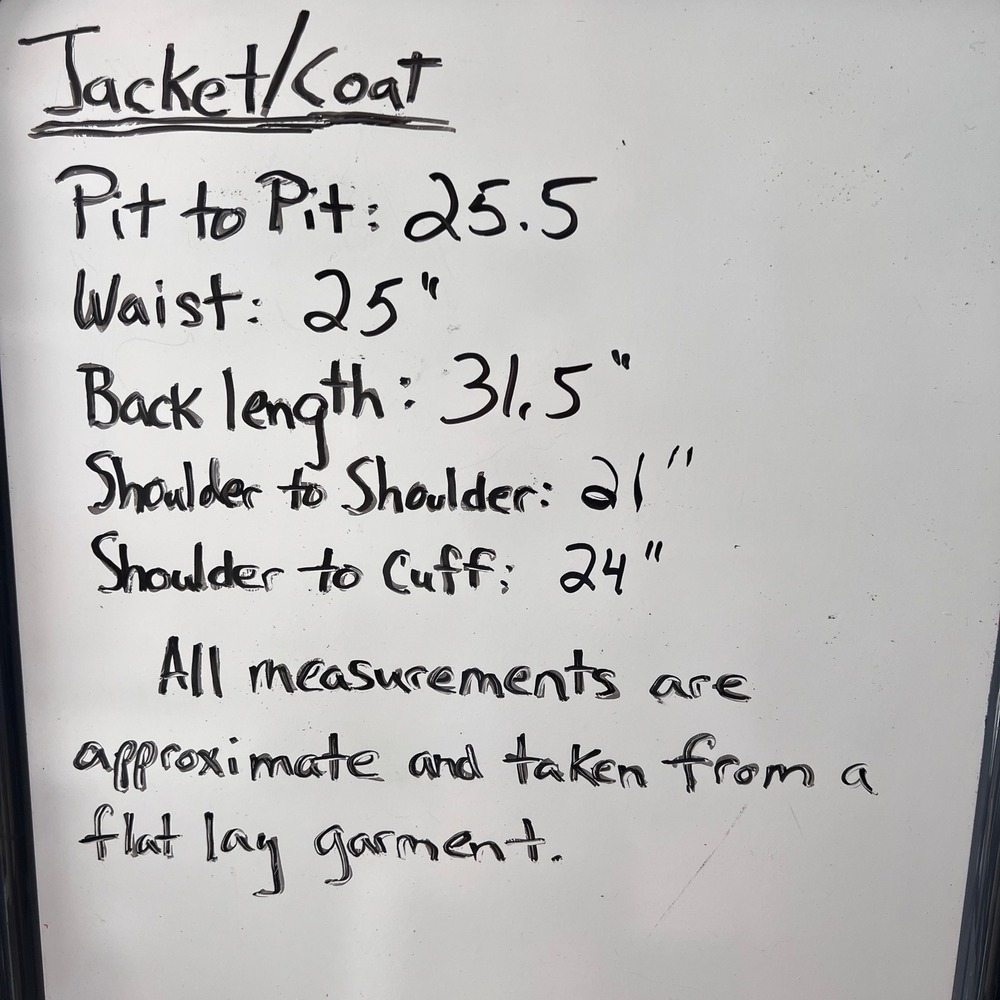 Jacket/Coat
Pit to Pit: 25.5
Waist: 25"
Back length: 31.5"
Shoulder to Shoulder: 21"
Shoulder to Cuff: 24"
All measurements are
approximate and taken from a
flat lay garment.